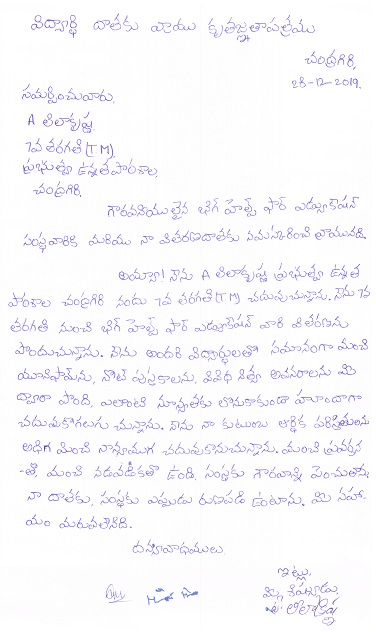 విద్యార్థి దాతకు వ్రాయు కృతజ్ఞతాపత్రము
చంద్రగిరి,
28-12-2019.
సమర్పించువారు,
A లీలాకృష్ణ
7వ తరగతి (T.M),
ప్రభుత్వ ఉన్నత పాఠశాల,
చంద్రగిరి.
గౌరవనీయులైన బిగ్ హెల్ప్ ఫార్ ఎడ్యుకేషన్
సంస్థవారికి మరియు నా వితరణదాతకు నమస్కరించి వ్రాయునది.
అమ్మా! నేను A లీలాకృష్ణ ప్రభుత్వ ఉన్నత
పాఠశాల చంద్రగిరి నందు 7వ తరగతి (TM) చదువుచున్నాను. నేను 7వ
తరగతి నుంచి బిగ్ హెల్ప్ ఫార్ ఎడ్యుకేషన్ వారి వితరణను
పొందుచున్నాను. నేను అందరి విద్యార్థులతో సమానంగా మంచి
యూనిఫామ్ను, నోట్ పుస్తకాలను, వివిధ నిత్య అవసరాలను మీ
ద్వారా పొంది, ఎలాంటి న్యూనతకు లోనుకాకుండా హుందాగా
చదువుకోగలుగు చున్నాను. నేను నా కుటుంబ ఆర్థిక పరిస్థితులను
అధిగమించి నాణ్యముగ చదువుకొనుచున్నాను. మంచి ప్రవర్తన
-తో, మంచి నడవడికతో ఉండి, సంస్థకు గౌరవాన్ని పెంచుతాను.
నా దాతకు, సంస్థకు ఎప్పుడు రుణపడి ఉంటాను. మీ సహా
యం మరువలేనిది.
ధన్యవాదములు.
ఇట్లు,
మీ
లీలాకృష్ణ